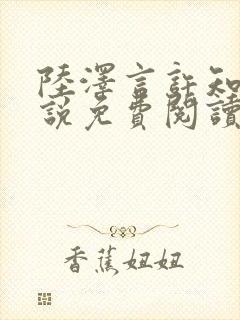 陸澤言許知
說免費閱讀
香蕉妞妞